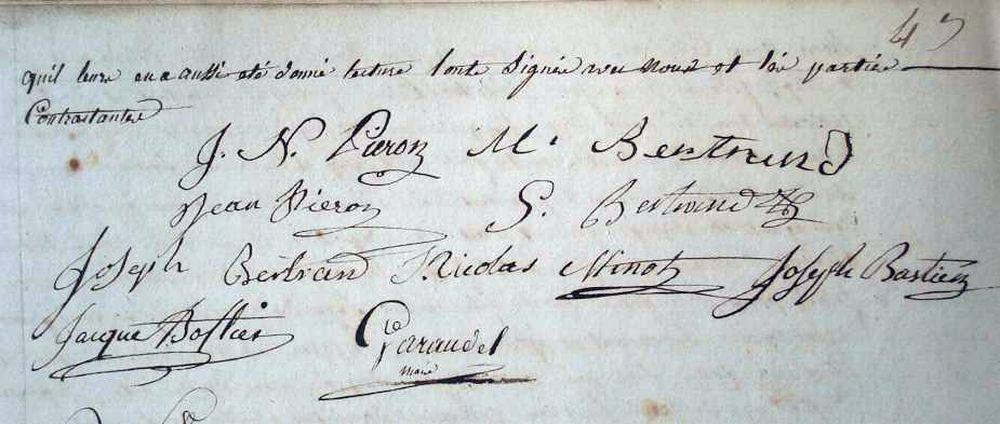 43
quil leure en a aussi été donné lecture l'ont Signée avec nous et les partiée
Contractantee
J. N. Pieron M. Bertrand
Jean Pieron G. Bertrand
Joseph Bertrand Nicolas Minot Joseph Bastien
Jacque
Garaudel
maire